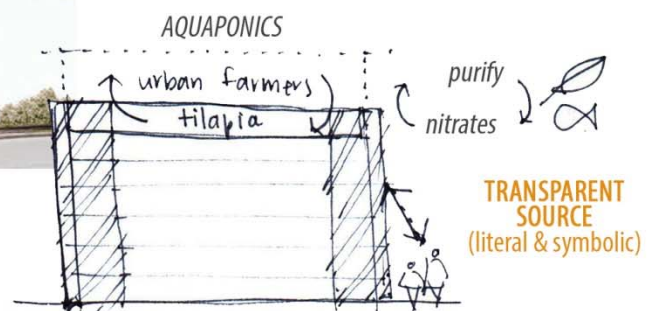 AQUAPONICS
urban farmers
tilapia
purify
nitrates
TRANSPARENT
SOURCE
(literal & symbolic)